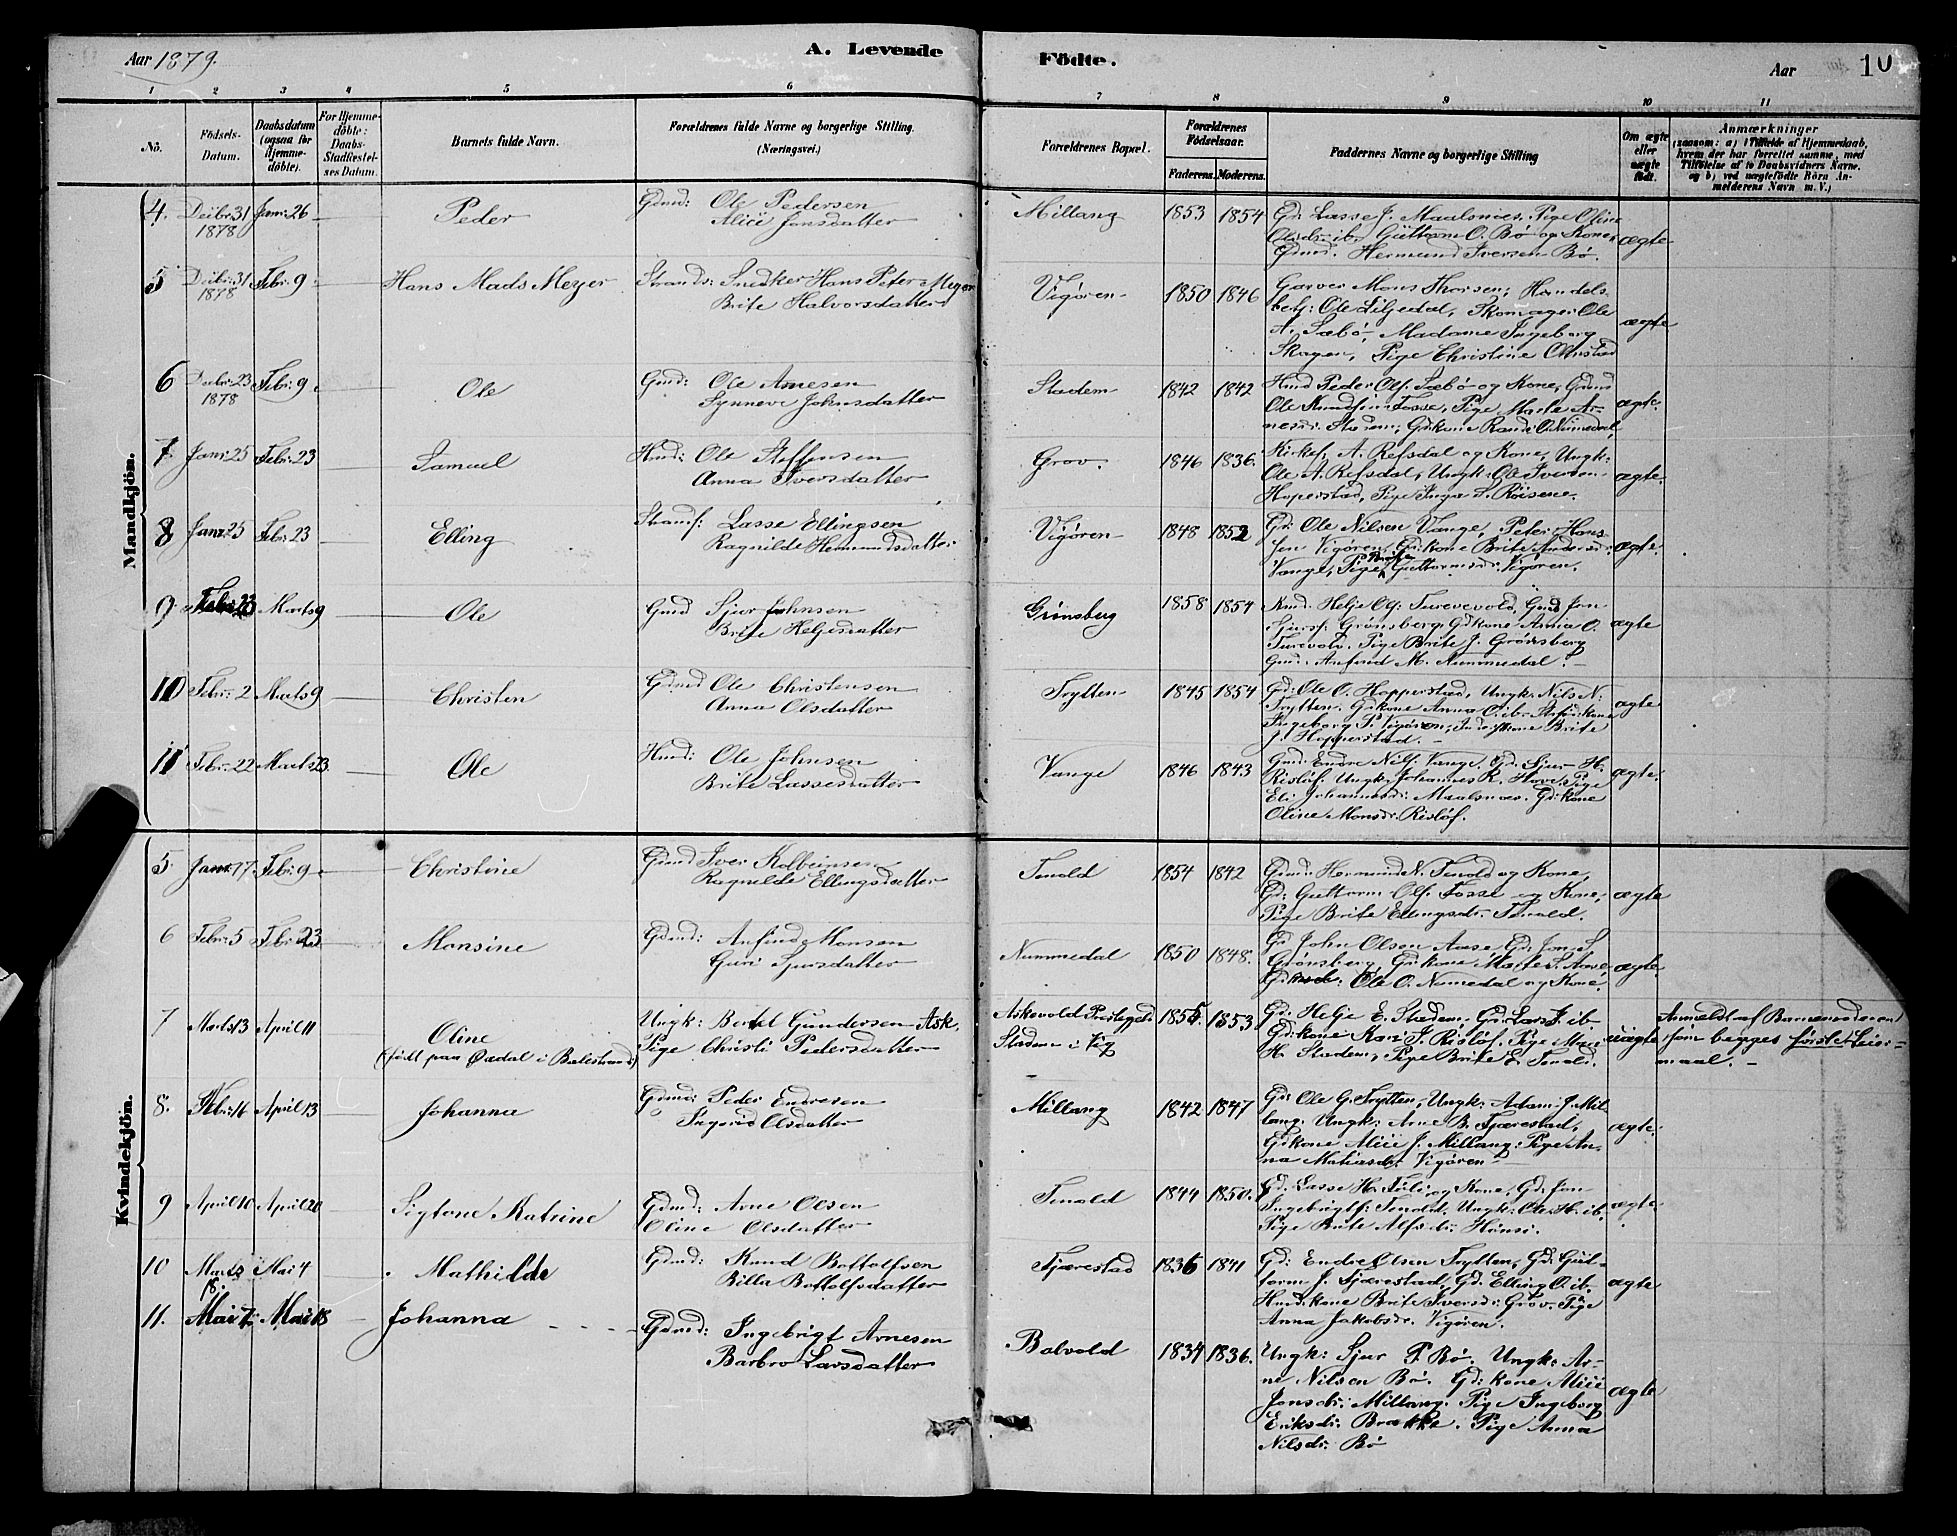 Aar 1879.
A. Levende
Födte.
Aar
10
1 2 3 4 5 6 7 8 9 10 11
No.
Födsels-Datum.
Daabsdatum (ogsaa for Hjemme-döbte).
For Hjemme-döbte: Daabs-Stadfæstel-ses Datum.
Barnets fulde Navn.
Forældrenes fulde Navne og borgerlige Stilling. (Næringsvei.)
Forældrenes Bopæl.
Forældrenes Födselsaar.
Faderens. Moderens.
Faddernes Navne og borgerlige Stilling
Om ægte eller uægte födt.
Anmærkninger
(saasom: a) i Tilfælde af Hjemmedaab, hvem der har forrettet samme, med Tilföielse af to Daabsvidners Navne, og b) ved uægtefödte Börn An-melderens Navn m. V.)
Mandkjön.
4. Decbr: 31 1878 Janr: 26 Peder Gdmd: Ole Pedersen
Alici Jonsdatter Millang 1853 1854 Gd: Lasse J. Maalsnæs. Pige Oline
Olsdr. ib. Guttorm O. Bø og Kone,
Gdmd. Hermund Iversen Bø. ægte
5 Decbr: 31 1878 Febr: 9 Hans Mads Meyer Strands: Snedker Hans Peter Meyer
Brite Halvorsdatter Vigøren 1850 1846 Garver Mons Thorsen; Handels-
betj: Ole Liljedal, Skomager Ole
A. Sæbø, Madame Ingeborg
Skagen, Pige Christine Olmstad ægte
6 Decbr: 23 1878 Febr: 9 Ole Gmd: Ole Arnesen
Synneve Johnsdatter Stadem 1842 1842 Hmd Peder Ols. Sæbø og Kone, Gdmd
Ole Knudsen Fosse, Pige Marte Ar-
nesdr. Stadem, Gdkone Randi O. Nummedal, ægte
7 Janr: 25 Febr: 23 Samuel Hmd: Ole Steffensen
Anna Iversdatter Grov. 1846 1836. Kirkes. A. Refsdal og Kone, Ungk:
Ole A. Refsdal, Ungk: Ole Iversen
Hoperstad, Pige Inga S. Röisene. ægte
8 Janr: 25 Febr: 23 Elling Strands: Lasse Ellingsen
Ragnilde Hermundsdatter Vigøren 1848 1852 Gd: Ole Nilsen Vange, Peder Hans-
sen Vigøren, Gdkone Brite Andersdr.
Vange, Pige Guttormsdr. Vigøren. ægte
9 Febr: 23 Marts 9 Ole Gmd Sjur Johnsen
Brite Heljesdatter Grönsberg 1858 1854 Hmd: Helje Ols: Turevold, Gmd Jon
Sjurs: Grønsberg, Gdkone Anna O.
Turevold, Pige Brite J. Grönsberg
Gmd. Anfind M. Nummedal. ægte
10 Febr: 2 Marts 9 Christen Gdmd Ole Christensen
Anna Olsdatter Trytten 1845 1854 Gd: Ole O. Hopperstad, Ungk: Nils N.
Trytten. Gdkone Anna O. ib.
Ingeborg P. Vigøren, Brite
J. Hopperstad. ægte
11 Febr: 22 Marts 23. Ole Hmd: Ole Johnsen
Brite Lassesdatter Vange 1846 1843 Gmd: Endre Nils: Vange. Gd: Sjur H.
Risløf. Ungk: Johannes R. Hove, Pige
Eli Johannesdr: Maalsnæs. Gdkone
Oline Monsdr. Risløf. ægte
Kvindekjön.
5. Janr: 17 Febr: 9 Christine Gdmd Iver Kolbeinsen
Ragnilde Ellingsdatter Tenold 1854 1842 Gdmd: Hermund N. Tenold og Kone,
Gd: Guttorm Ols. Fosse og Kone,
Pige Brite Ellingsdr. Tenold. ægte
6 Febr: 5 Febr: 23 Monsine Gdmd: Anfind Monsen
Guri Sjursdatter Nummedal 1850 1848. Gd: John Olsen Aase, Gd: Jon S.
Grønsberg, Gdkone Marte S. Aase
Gd: Ole O. Nummedal og Kone. ægte
7 Marts 13 April 11 Oline
(født paa Ordal i Balestrand) Ungk: Bertel Gundersen Ask.
Pige Christi Pedersdatter Askevold Prestegjeld
Stadem i Vig 1855. 1853 Gd: Helje E. Stadem, Gd: Lars J. ib.
Gdkone Kari J. Risløf, Pige Mari
H. Stadem, Pige Brite E. Tenold. uægte Anmeldt af Barnemoderen
som begges første Leier-
maal.
8. Febr: 16 April 13 Johanna Gdmd: Peder Endresen
Ingerid Olsdatter Millang 1842 1847 Gd: Ole G. Trytten, Ungk: Adam J. Mil-
lang. Ungk: Arne B. Tjærestad,
Gdkone Alici J. Millang. Pige An-
na Matiasdr. Vigøren ægte
9 April 10 April 20 Sigtone Katrine Gdmd: Arne Olsen
Oline Olsdatter Tenold 1844 1850. Gd. Lasse H. Föli og Kone, Gd: Jon
Ingebrigts: Tenold. Ungk: Ole H. ib.
Pige Brite Alfsdr. Hönsi. ægte
10 Marts 18. Mai 4 Mathilde Gdmd: Knud Bottolfsen
Billa Bottolfsdatter Tjærestad 1836 1841 Gd: Endre Olsen Trytten, Gd: Gut-
torm J. Tjærestad, Gd. Elling O. ib.
Hmd: kone Brite Iversdr: Grov. Pige
Anna Jakobsdr. Vigøren. ægte
11. Mai 7 Mai 18 Johanna Gdmd: Ingebrigt Arnesen
Barbro Larsdatter Bolvold 1834 1836. Ungk: Sjur P. Bø. Ungk: Ar-
ne Nilsen Bø. Gd: kone Alici
Jonsdr. Millang. Pige Ingeborg
Eriksdr. Brække. Pige Anna
Nilsdr. Bø ægte